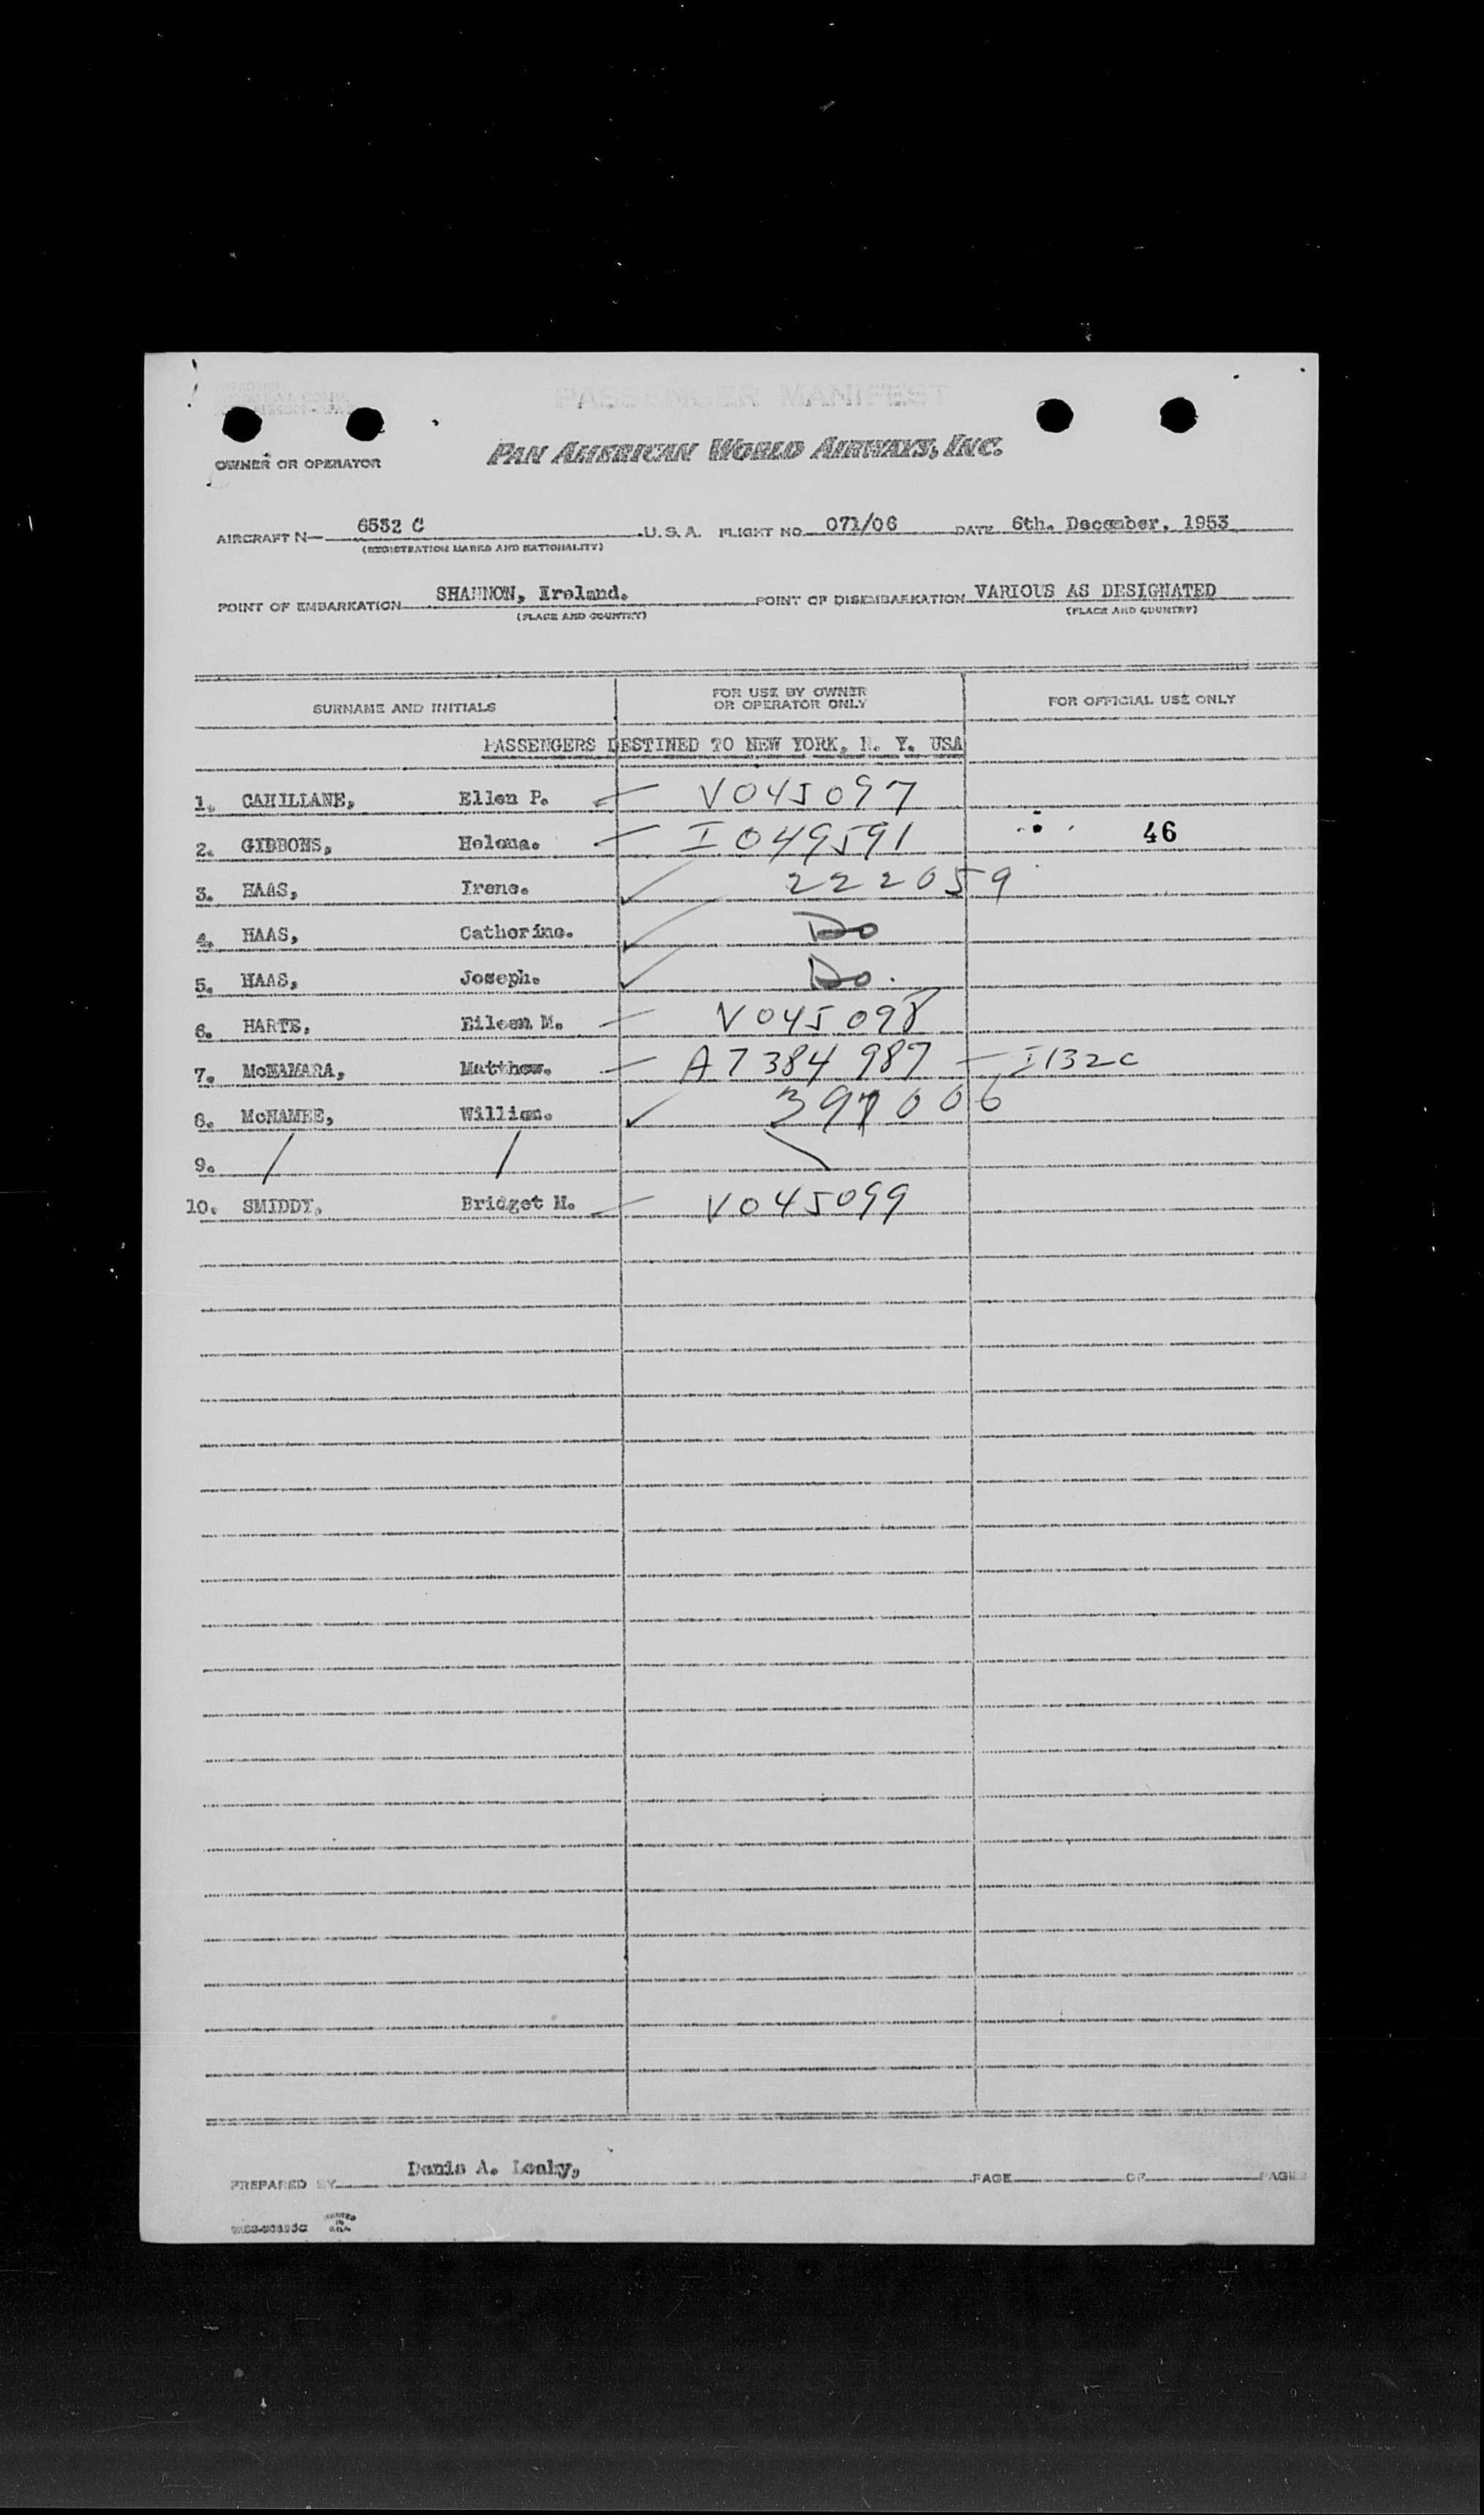 PASSENGER MANIFEST
PAN AMERICAN WORLD AIRWAYS, INC.
OWNER OR OPERATOR
AIRCRAFT N— 6532 C U.S.A. FLIGHT NO. 071/06 DATE 6th. December, 1953
(REGISTRATION MARKS AND NATIONALITY)
POINT OF EMBARKATION SHANNON, Ireland. POINT OF DISEMBARKATION VARIOUS AS DESIGNATED
(PLACE AND COUNTRY) (PLACE AND COUNTRY)
SURNAME AND INITIALS FOR USE BY OWNER OR OPERATOR ONLY FOR OFFICIAL USE ONLY
PASSENGERS DESTINED TO NEW YORK, N. Y. USA
1. CAHILLANE, Ellen P. — V045097
2. GIBBONS, Helena. — I049591 46
3. HAAS, Irene. ✓ 222059
4. HAAS, Catherine. ✓ Do
5. HAAS, Joseph. ✓ Do.
6. HARTE, Eileen M. — V045098
7. McNAMARA, Matthew. — A7384987 — I132C
8. McNAMEE, William. ✓ 397006
9. / / \
10. SMIDDY, Bridget M. — V045099
PREPARED BY Denis A. Leahy, PAGE OF PAGES
PRINTED IN U.S.A.